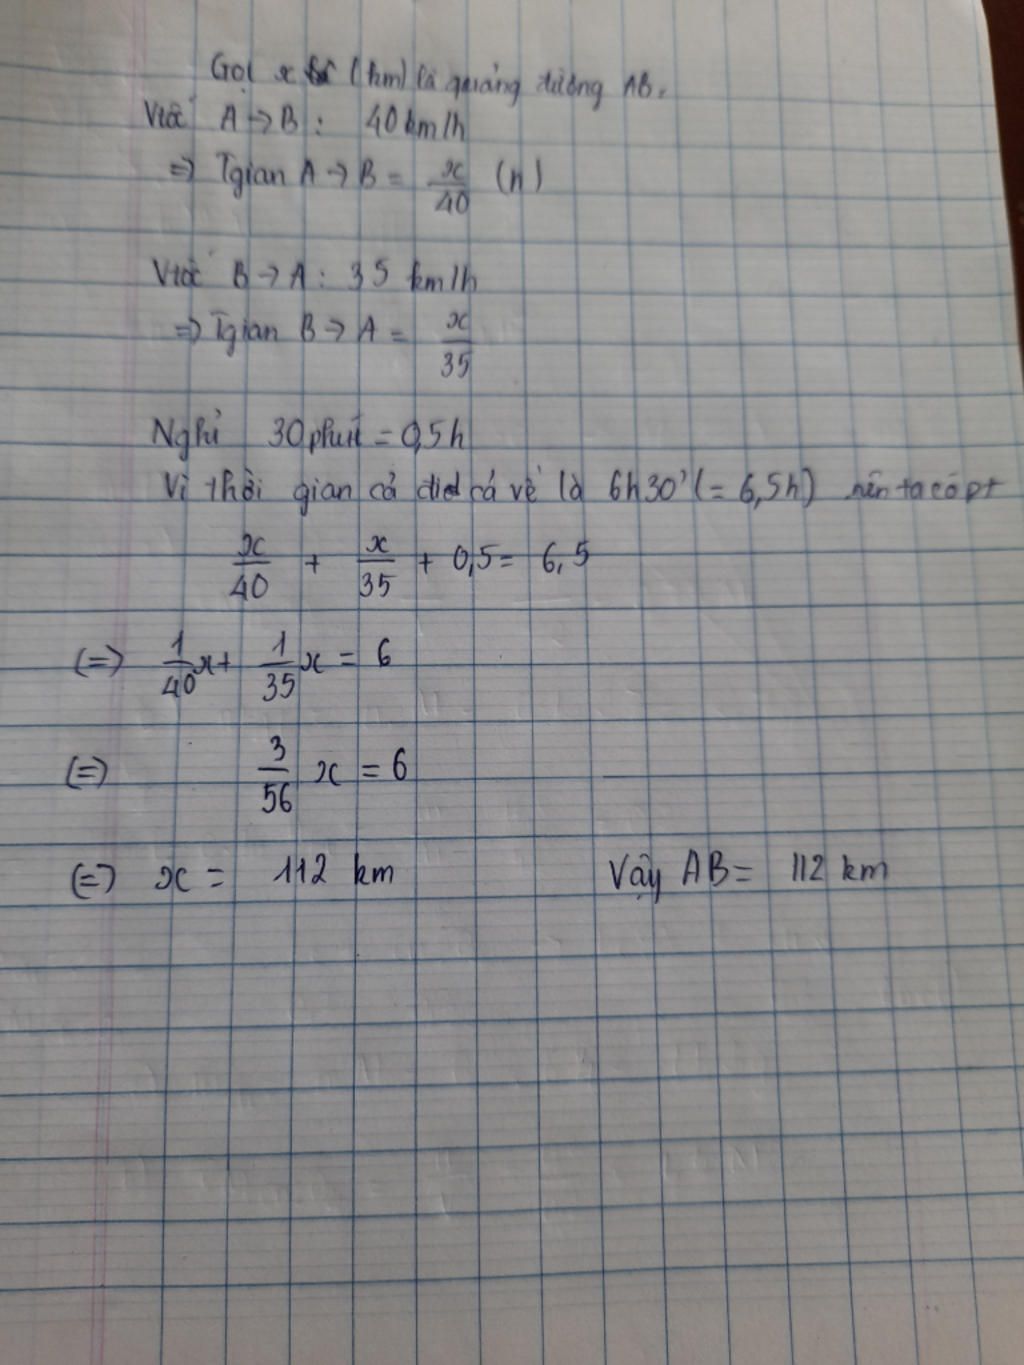 Gọi x (km) là quãng đường AB.
Vtốc A → B : 40 km/h
=> Tgian A → B = x/40 (h)
Vtốc B → A : 35 km/h
=> Tgian B → A = x/35
Nghỉ 30 phút = 0,5h
Vì thời gian cả đi cả về là 6h30' (= 6,5h) nên ta có pt
x/40 + x/35 + 0,5 = 6,5
(=) 1/40 x + 1/35 x = 6
(=) 3/56 x = 6
(=) x = 112 km Vậy AB = 112 km